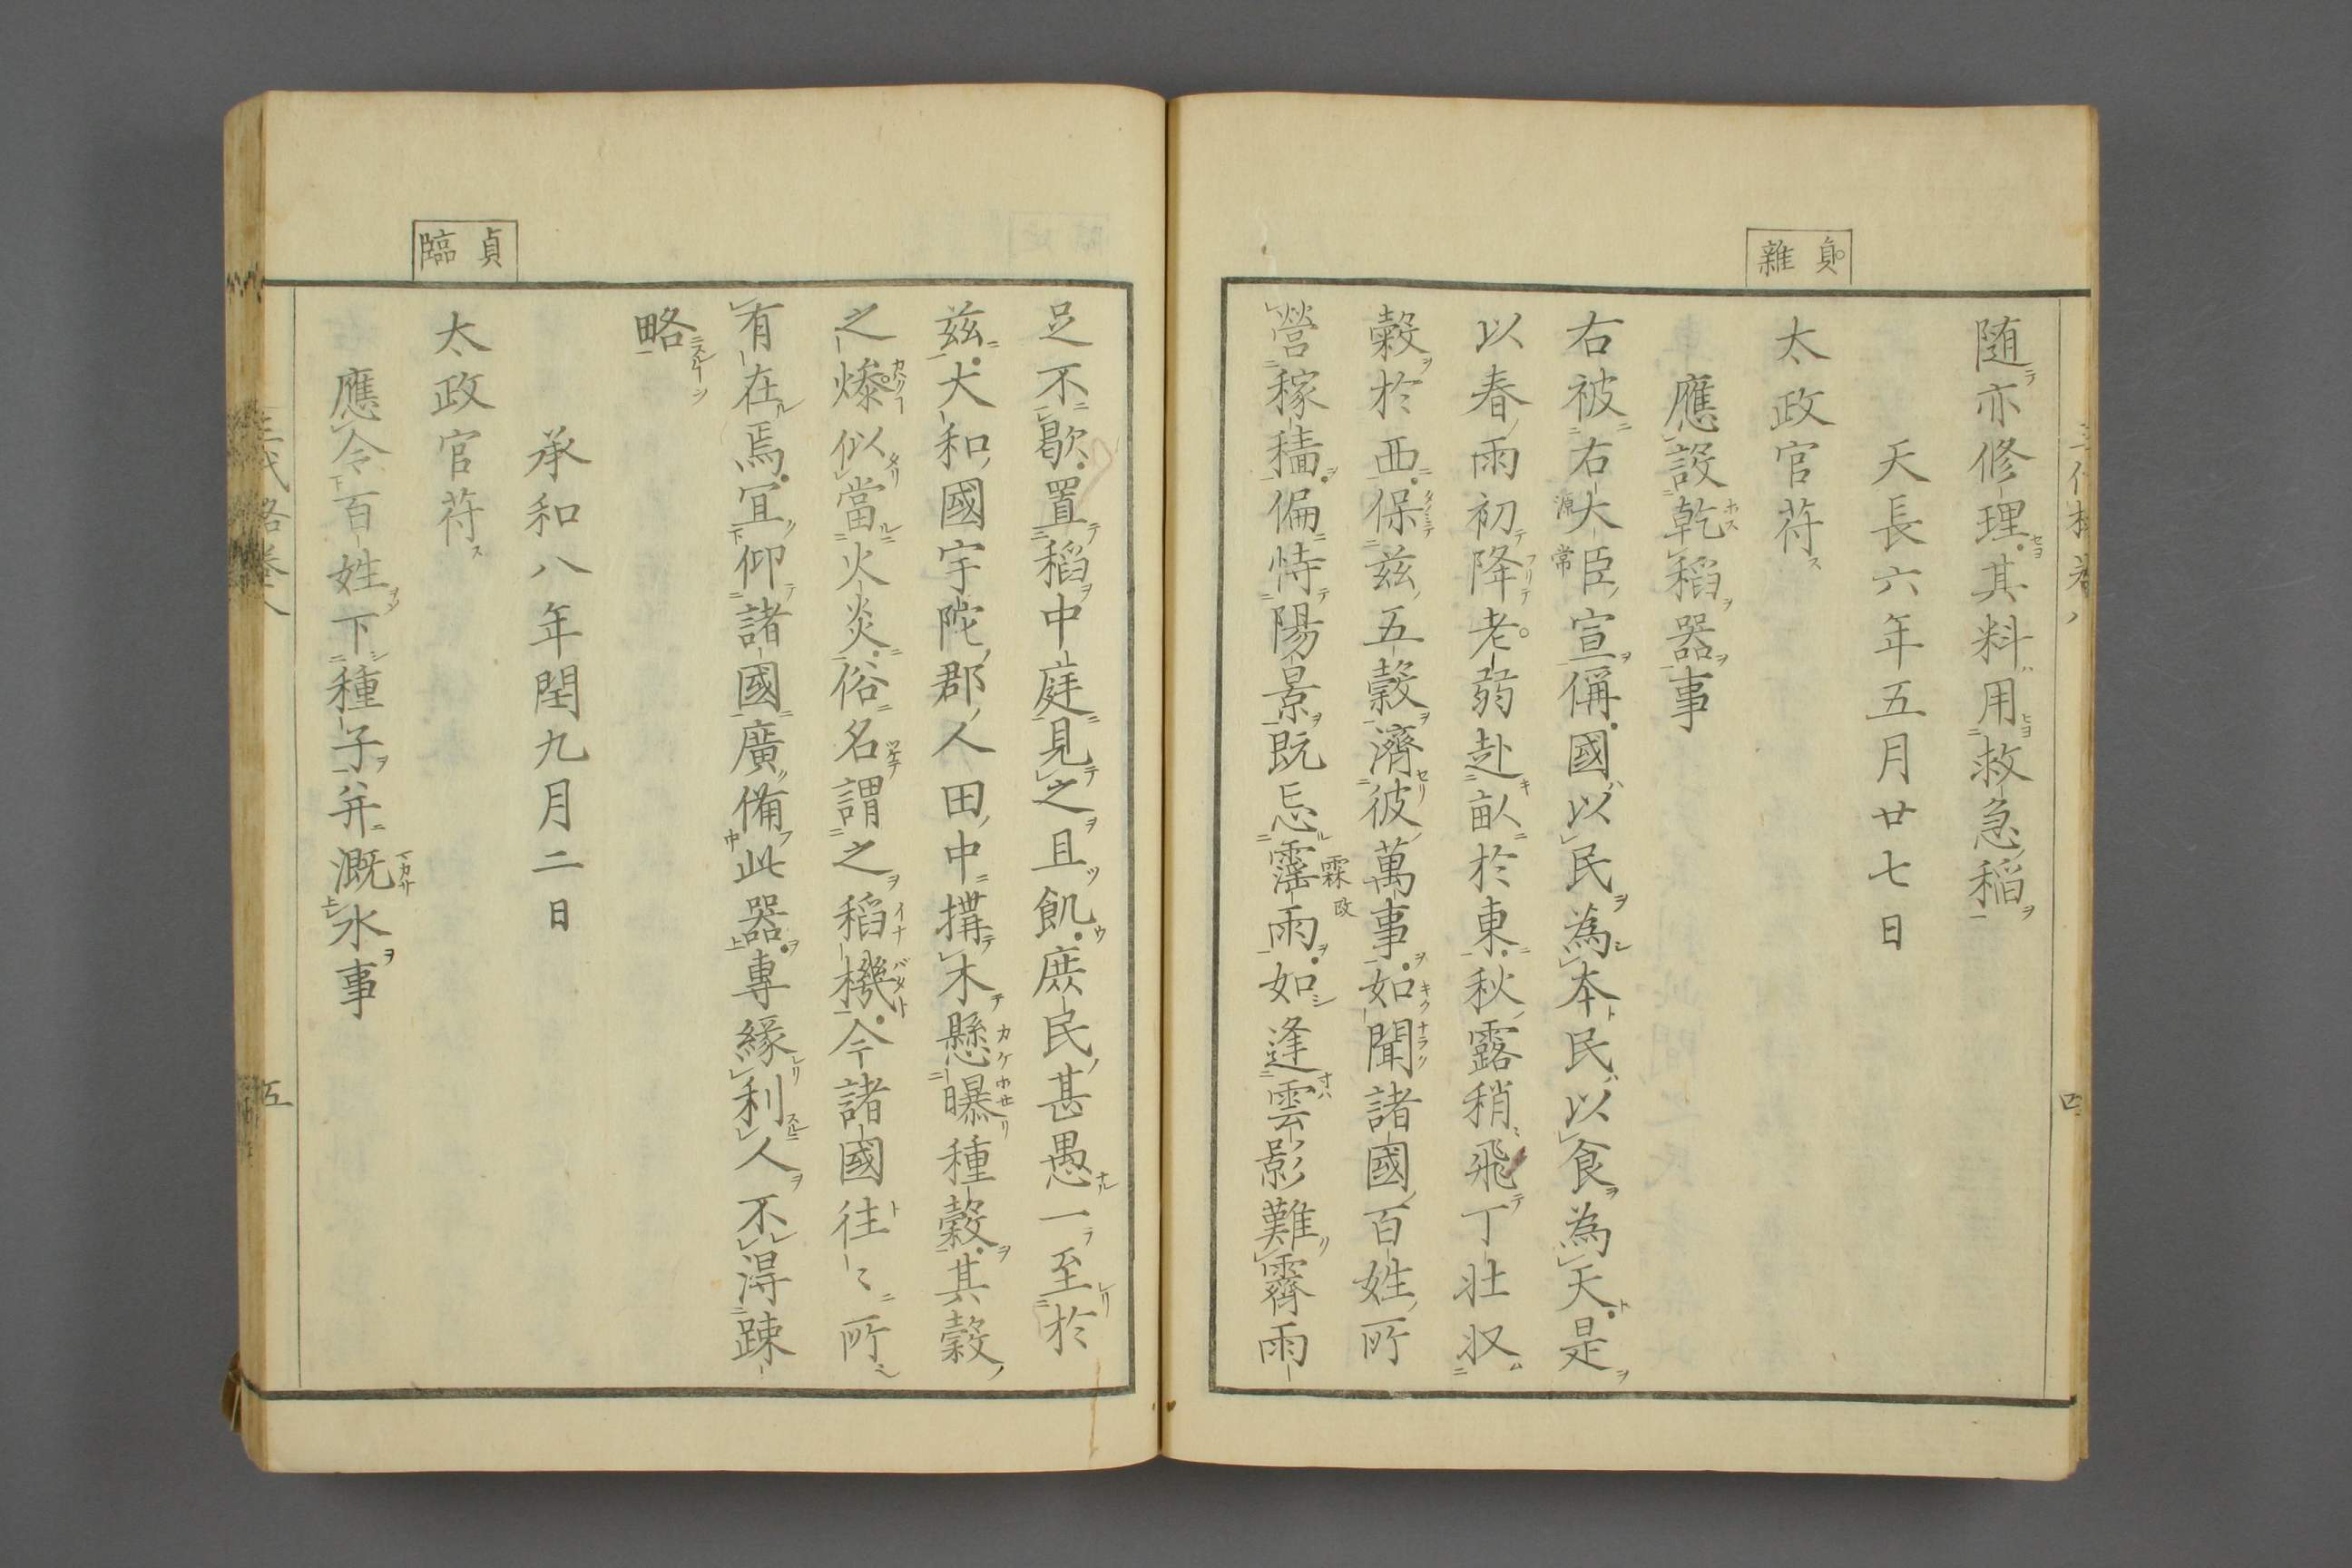 貞雜
随亦修理其料用救急稲
天長六年五月廿七日
太政官苻
應設乾稻器事
右被右大臣宣偁國以民為本民以食為天是
源常
以春雨初降老弱赴畒於東秋露稍飛丁壮収
穀於西保兹五穀濟彼萬事如聞諸國百姓所
營稼穡偏恃陽景既忘霪雨如逢雲影難霽雨
霖政
四
貞臨
足不歇置稻中庭見之且飢庶民甚愚一至於
兹大和國宇陀郡人田中構木懸曝種穀其穀
之㷶似當火炎俗名謂之稻機今諸國往〻所
有在焉冝仰諸國廣備此器專縁利人不得踈
略
承和八年閏九月二日
太政官苻
應令百姓下種子并漑水事
五